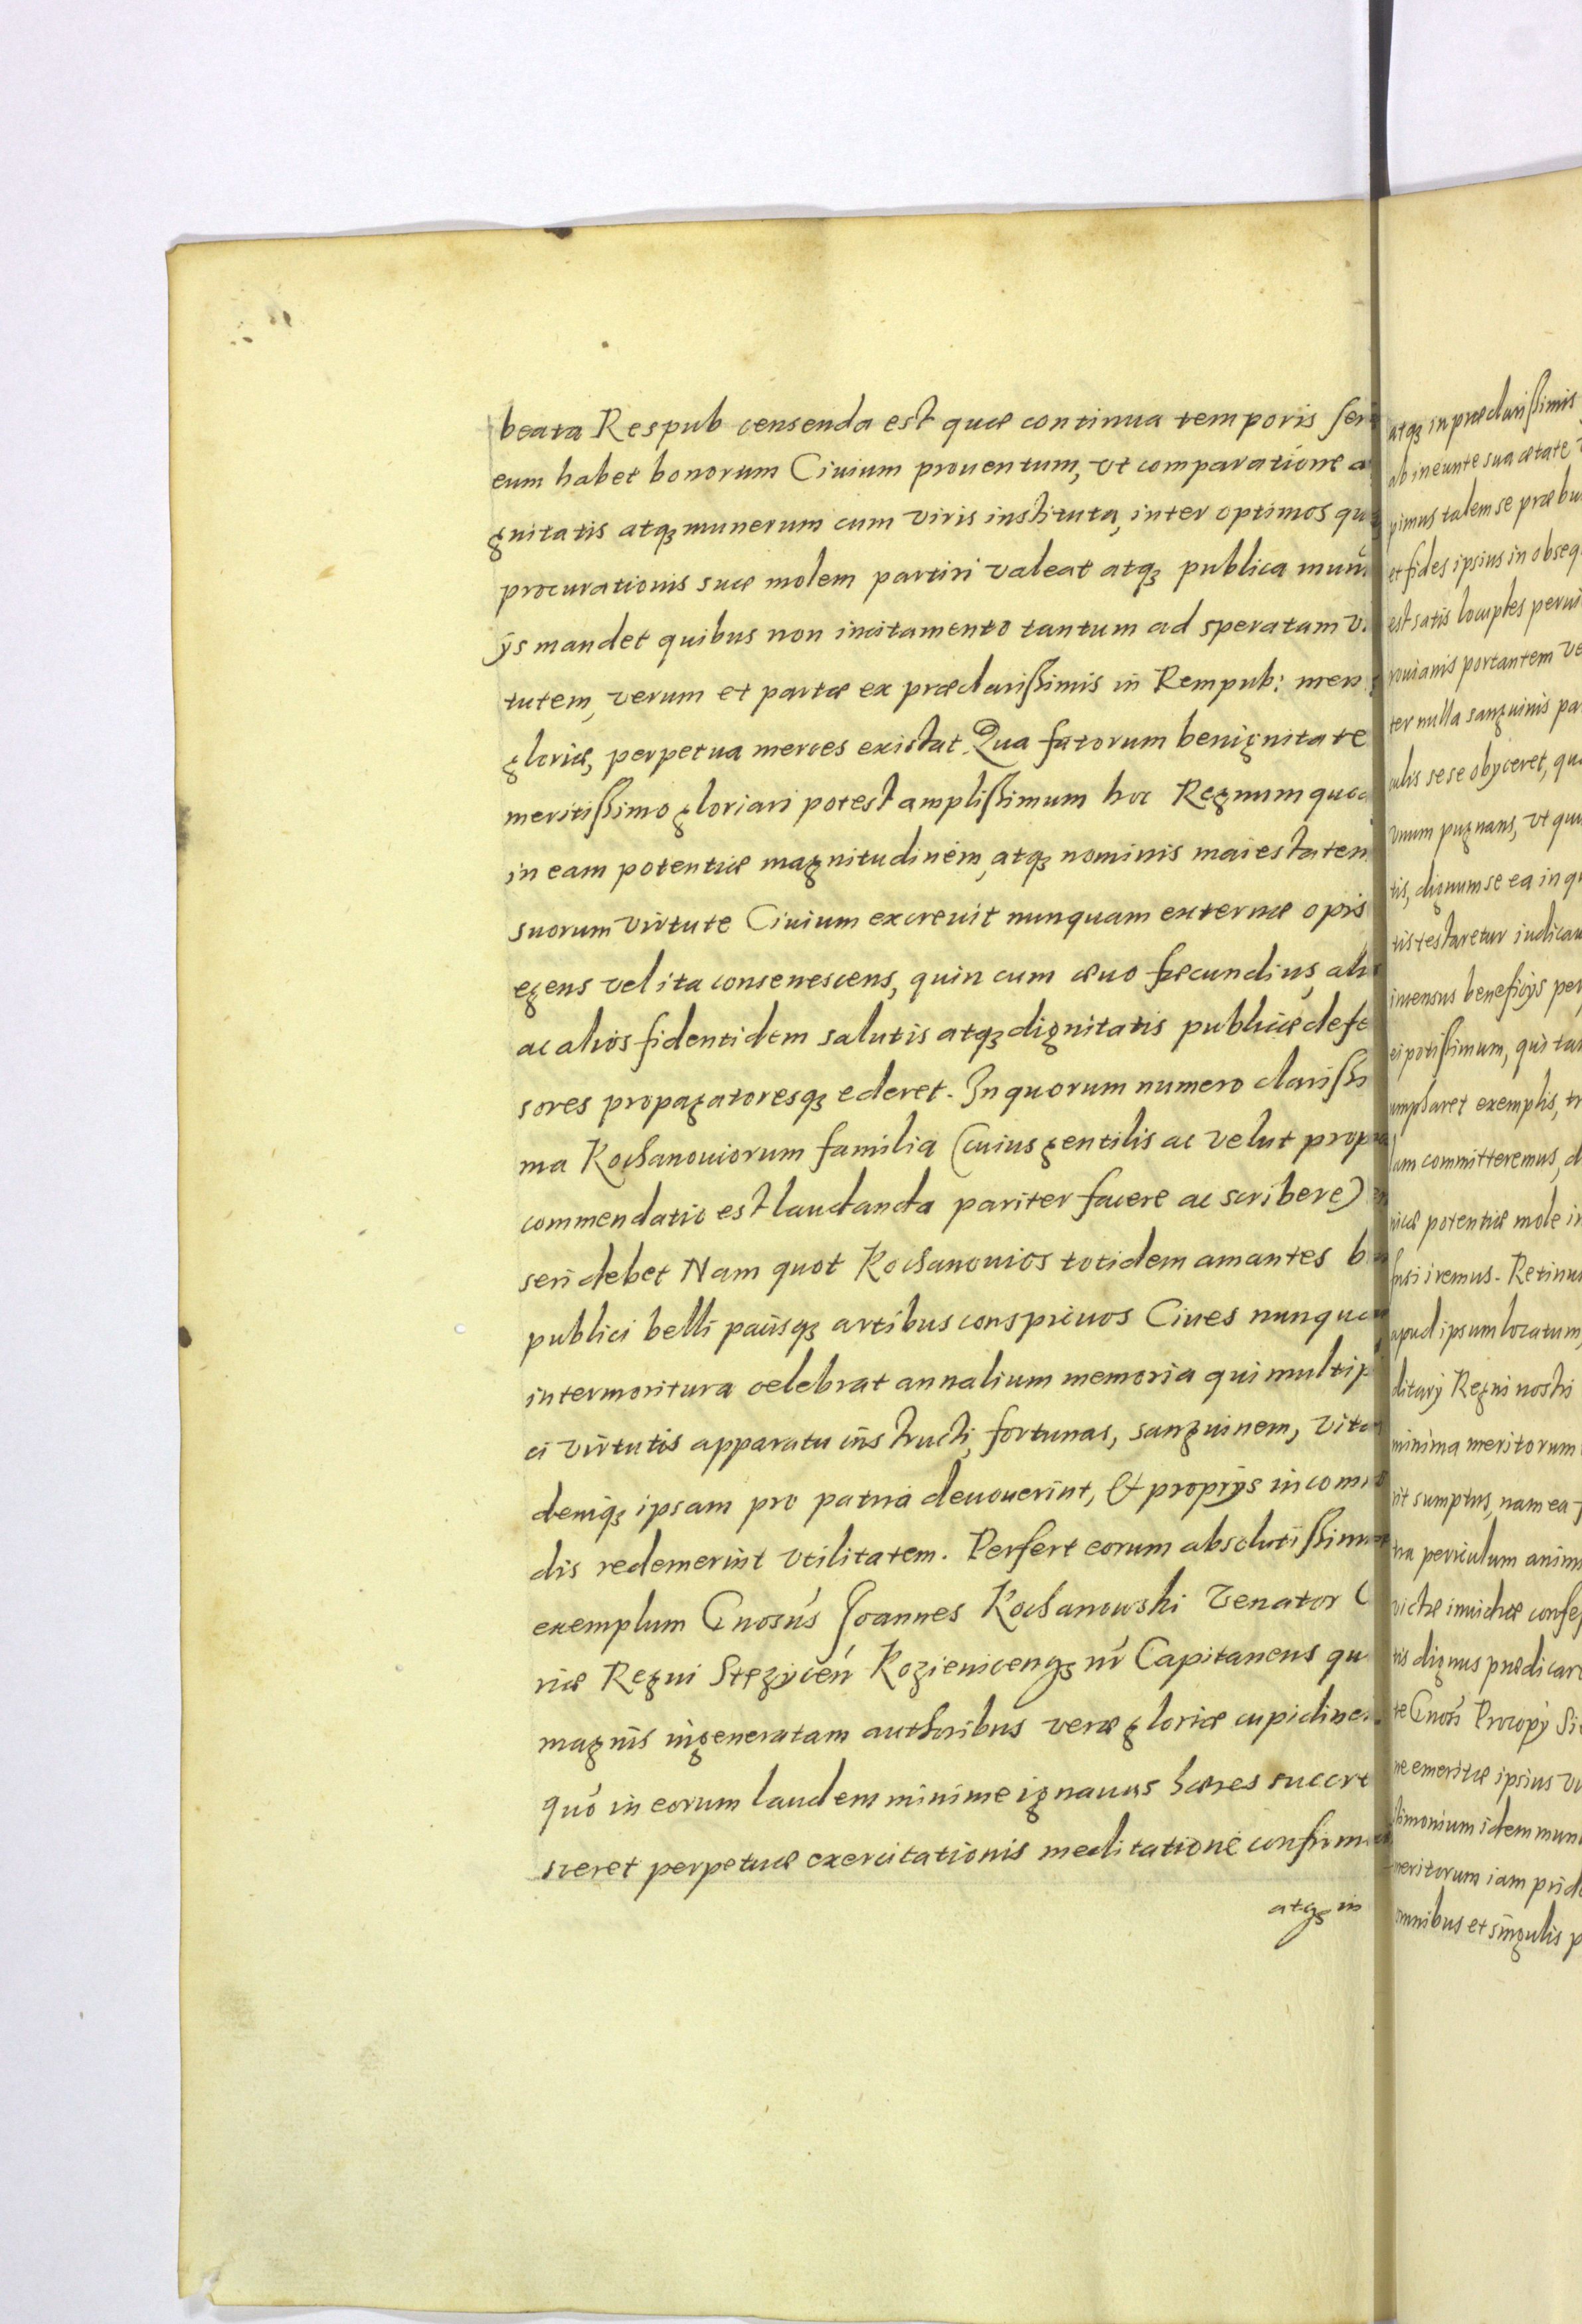 beata Respub censenda est quæ continua temporis seri
eum habet bonorum Ciuium prouentum, vt comparatione a
gnitatis atqꝫ munerum cum viris instituta, inter optimos qu
procurationis suæ molem partiri valeat atqꝫ publica mun
ÿs mandet quibus non incitamento tantum ad speratam vi
tutem, verum et partæ ex præclarißimis in Rempub: mer
gloriæ, perpetua merces existat. Qua fatorum benignitate
meritißimo gloriari potest amplißimum hoc Regnum quod
in eam potentiæ magnitudinem, atqꝫ nominis maiestatem
suorum virtute Ciuium excreuit nunquam externæ opis
egens vel ita consenescens, quin cum æuo fæcundius, alio
ac alios fidentidem salutis atqꝫ dignitatis publicæ defe
sores propagatoresqꝫ ederet. In quorum numero clarißi
ma Kochanouiorum familia (cuius gentilis ac velut propr
commendatio est laudanda pariter facere ac scribere)
seri debet Nam quot Kochanouios totidem amantes b
publici belli pacisqꝫ artibus conspicuos Ciues nunqua
intermoritura celebrat annalium memoria qui multip
ci virtutis apparatu instructi, fortunas, sanguinem, vita
deniqꝫ ipsam pro patria deuouerint, & proprÿs incomo
dis redemerint vtilitatem. Perfert eorum absolutißimu
exemplum Gnosus Joannes Kochanowski Venator C
riæ Regni Stęzÿcen Kozienicenqꝫ nr Capitaneus qu
magnis ingeneratam authoribus veræ gloriæ cupidinem
quo in eorum laudem minime ignauus hæres succre
sceret perpetuæ exercitationis meditatione confirm
atqꝫ in
atqꝫ in præclarißimis
ab ineunte sua ætate
pimus talem se præbu
et fides ipsius in obseq
est satis locuples perui
rouianis portantem ve
ter nulla sanguinis pa
culis sese obÿceret, qu
vnum pugnans, vt qu
tis, dignum se ea in q
tis testaretur iudicau
imensus beneficÿs per
ei potißimum, qui ta
ampliaret exemplis, tr
lam committeremus, d
nicæ potentiæ mole in
fusi iremus. Retinu
apud ipsum locatum,
ditarÿ Regni nostri
minima meritorum
rit sumptus, nam ea
tra periculum anim
victæ inuictæ confe
tis dignus prædicar
te Gnosi Procopÿ Si
ne emeritæ ipsius vi
stimonium idem mun
meritorum iam prid
omnibus et singulis p